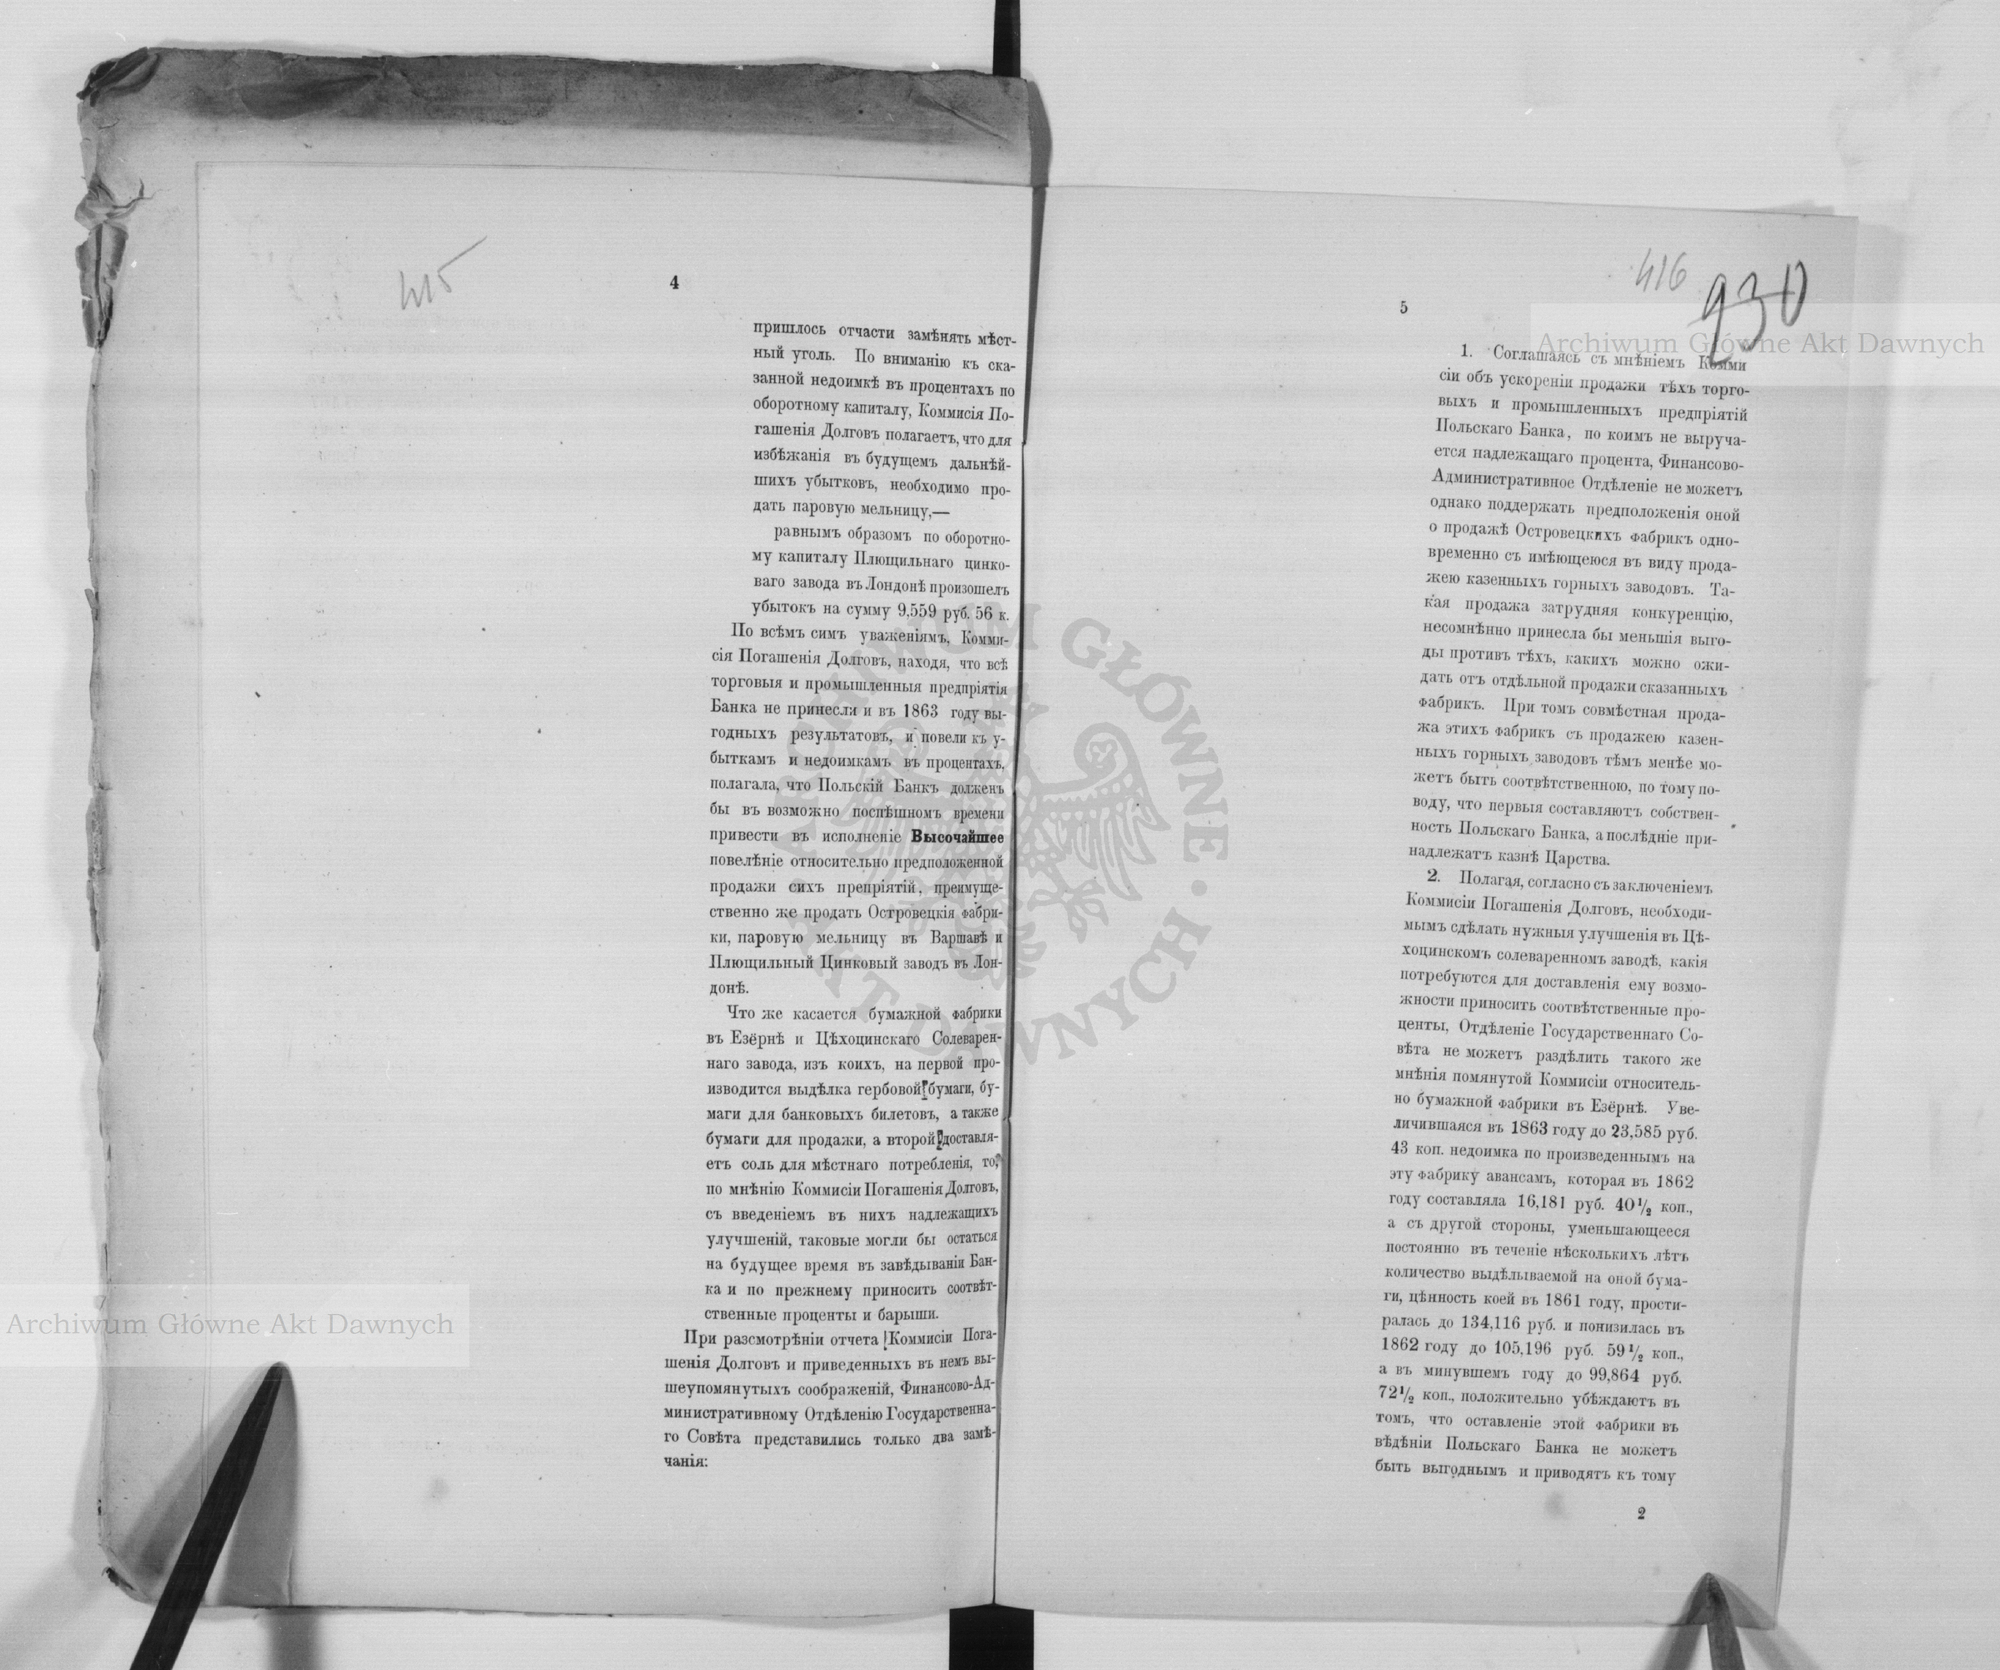 415
4
пришлось отчасти замѣнять мѣст-
ный уголь. По вниманію къ ска-
занной недоимкѣ въ процентахъ по
оборотному капиталу, Коммисія По-
гашенія Долговъ полагаетъ, что для
избѣжанія въ будущемъ дальнѣй-
шихъ убытковъ, необходимо про-
дать паровую мельницу,—
равнымъ образомъ по оборотно-
му капиталу Плющильнаго цинко-
ваго завода въ Лондонѣ произошелъ
убытокъ на сумму 9,559 руб. 56 к.
По всѣмъ симъ уваженіямъ, Комми-
сія Погашенія Долговъ, находя, что всѣ
торговыя и промышленныя предпріятія
Банка не принесли и въ 1863 году вы-
годныхъ результатовъ, и повели къ у-
быткамъ и недоимкамъ въ процентахъ,
полагала, что Польскій Банкъ долженъ
бы въ возможно поспѣшномъ времени
привести въ исполненіе Высочайшее
повелѣніе относительно предположенной
продажи сихъ препріятій, преимуще-
ственно же продать Островецкія фабри-
ки, паровую мельницу въ Варшавѣ и
Плющильный Цинковый заводъ въ Лон-
донѣ.
Что же касается бумажной фабрики
въ Езёрнѣ и Цѣхоцинскаго Солеварен-
наго завода, изъ коихъ, на первой про-
изводится выдѣлка гербовой бумаги, бу-
маги для банковыхъ билетовъ, а также
бумаги для продажи, а второй доставля-
етъ соль для мѣстнаго потребленія, то,
по мнѣнію Коммисіи Погашенія Долговъ,
съ введеніемъ въ нихъ надлежащихъ
улучшеній, таковые могли бы остаться
на будущее время въ завѣдываніи Бан-
ка и по прежнему приносить соотвѣт-
ственные проценты и барыши.
При разсмотрѣніи отчета Коммисіи Пога-
шенія Долговъ и приведенныхъ въ немъ вы-
шеупомянутыхъ соображеній, Финансово-Ад-
министративному Отдѣленію Государственна-
го Совѣта представились только два замѣ-
чанія:
416
230
5
1. Соглашаясь съ мнѣніемъ Комми
сіи объ ускореніи продажи тѣхъ торго-
выхъ и промышленныхъ предпріятій
Польскаго Банка, по коимъ не выруча-
ется надлежащаго процента, Финансово-
Административное Отдѣленіе не можетъ
однако поддержать предположенія оной
о продажѣ Островецкихъ фабрикъ одно-
временно съ имѣющеюся въ виду прода-
жею казенныхъ горныхъ заводовъ. Та-
кая продажа затрудняя конкуренцію,
несомнѣнно принесла бы меньшія выго-
ды противъ тѣхъ, какихъ можно ожи-
дать отъ отдѣльной продажи сказанныхъ
фабрикъ. При томъ совмѣстная прода-
жа этихъ фабрикъ съ продажею казен-
ныхъ горныхъ заводовъ тѣмъ менѣе мо-
жетъ быть соотвѣтственною, по тому по-
воду, что первыя составляютъ собствен-
ность Польскаго Банка, а послѣдніе при-
надлежатъ казнѣ Царства.
2. Полагая, согласно съ заключеніемъ
Коммисіи Погашенія Долговъ, необходи-
мымъ сдѣлать нужныя улучшенія въ Цѣ-
хоцинскомъ солеваренномъ заводѣ, какія
потребуются для доставленія ему возмо-
жности приносить соотвѣтственные про-
центы, Отдѣленіе Государственнаго Со-
вѣта не можетъ раздѣлить такого же
мнѣнія помянутой Коммисіи относитель-
но бумажной фабрики въ Езёрнѣ. Уве-
личившаяся въ 1863 году до 23,585 руб.
43 коп. недоимка по произведеннымъ на
эту фабрику авансамъ, которая въ 1862
году составляла 16,181 руб. 40½ коп.,
а съ другой стороны, уменьшающееся
постоянно въ теченіе нѣсколькихъ лѣтъ
количество выдѣлываемой на оной бума-
ги, цѣнность коей въ 1861 году, прости-
ралась до 134,116 руб. и понизилась въ
1862 году до 105,196 руб. 59½ коп.,
а въ минувшемъ году до 99,864 руб.
72½ коп., положительно убѣждаютъ въ
томъ, что оставленіе этой фабрики въ
вѣдѣніи Польскаго Банка не можетъ
быть выгоднымъ и приводятъ къ тому
2
Archiwum Główne Akt Dawnych
Archiwum Główne Akt Dawnych
ARCHIWUM GŁÓWNE AKT DAWNYCH